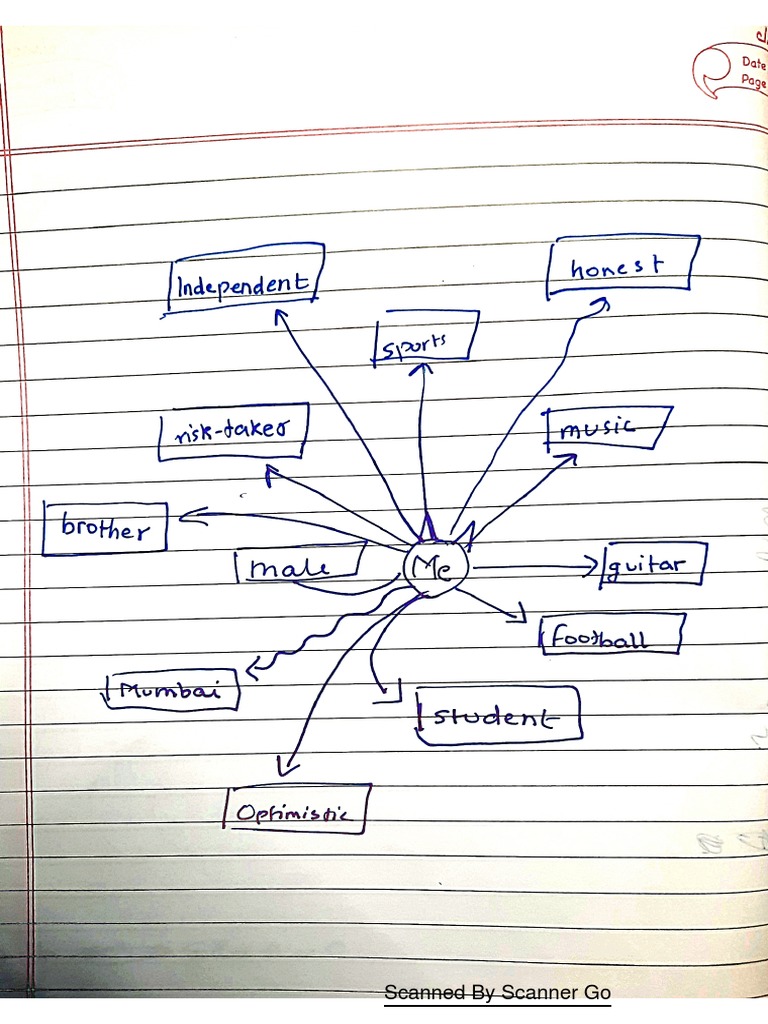 Date
Page
Independent
honest
sports
risk-taker
music
brother
male
Me
guitar
football
Mumbai
student
Optimistic
Scanned By Scanner Go